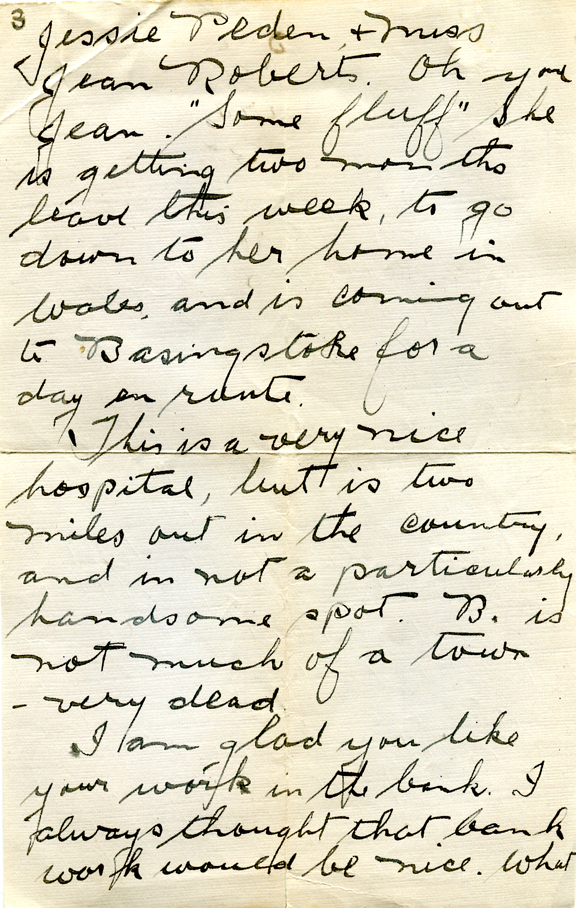 3
Jessie Peden, + Miss
Jean Roberts. Oh you
Jean. "Some fluff" She
is getting two months
leave this week, to go
down to her home in
Wales, and is coming out
to Basingstoke for a
day en route.
This is a very nice
hospital, but is two
miles out in the country,
and in not a particularly
handsome spot. B. is
not much of a town
- very dead.
I am glad you like
your work in the bank. I
always thought that bank
work would be nice. What